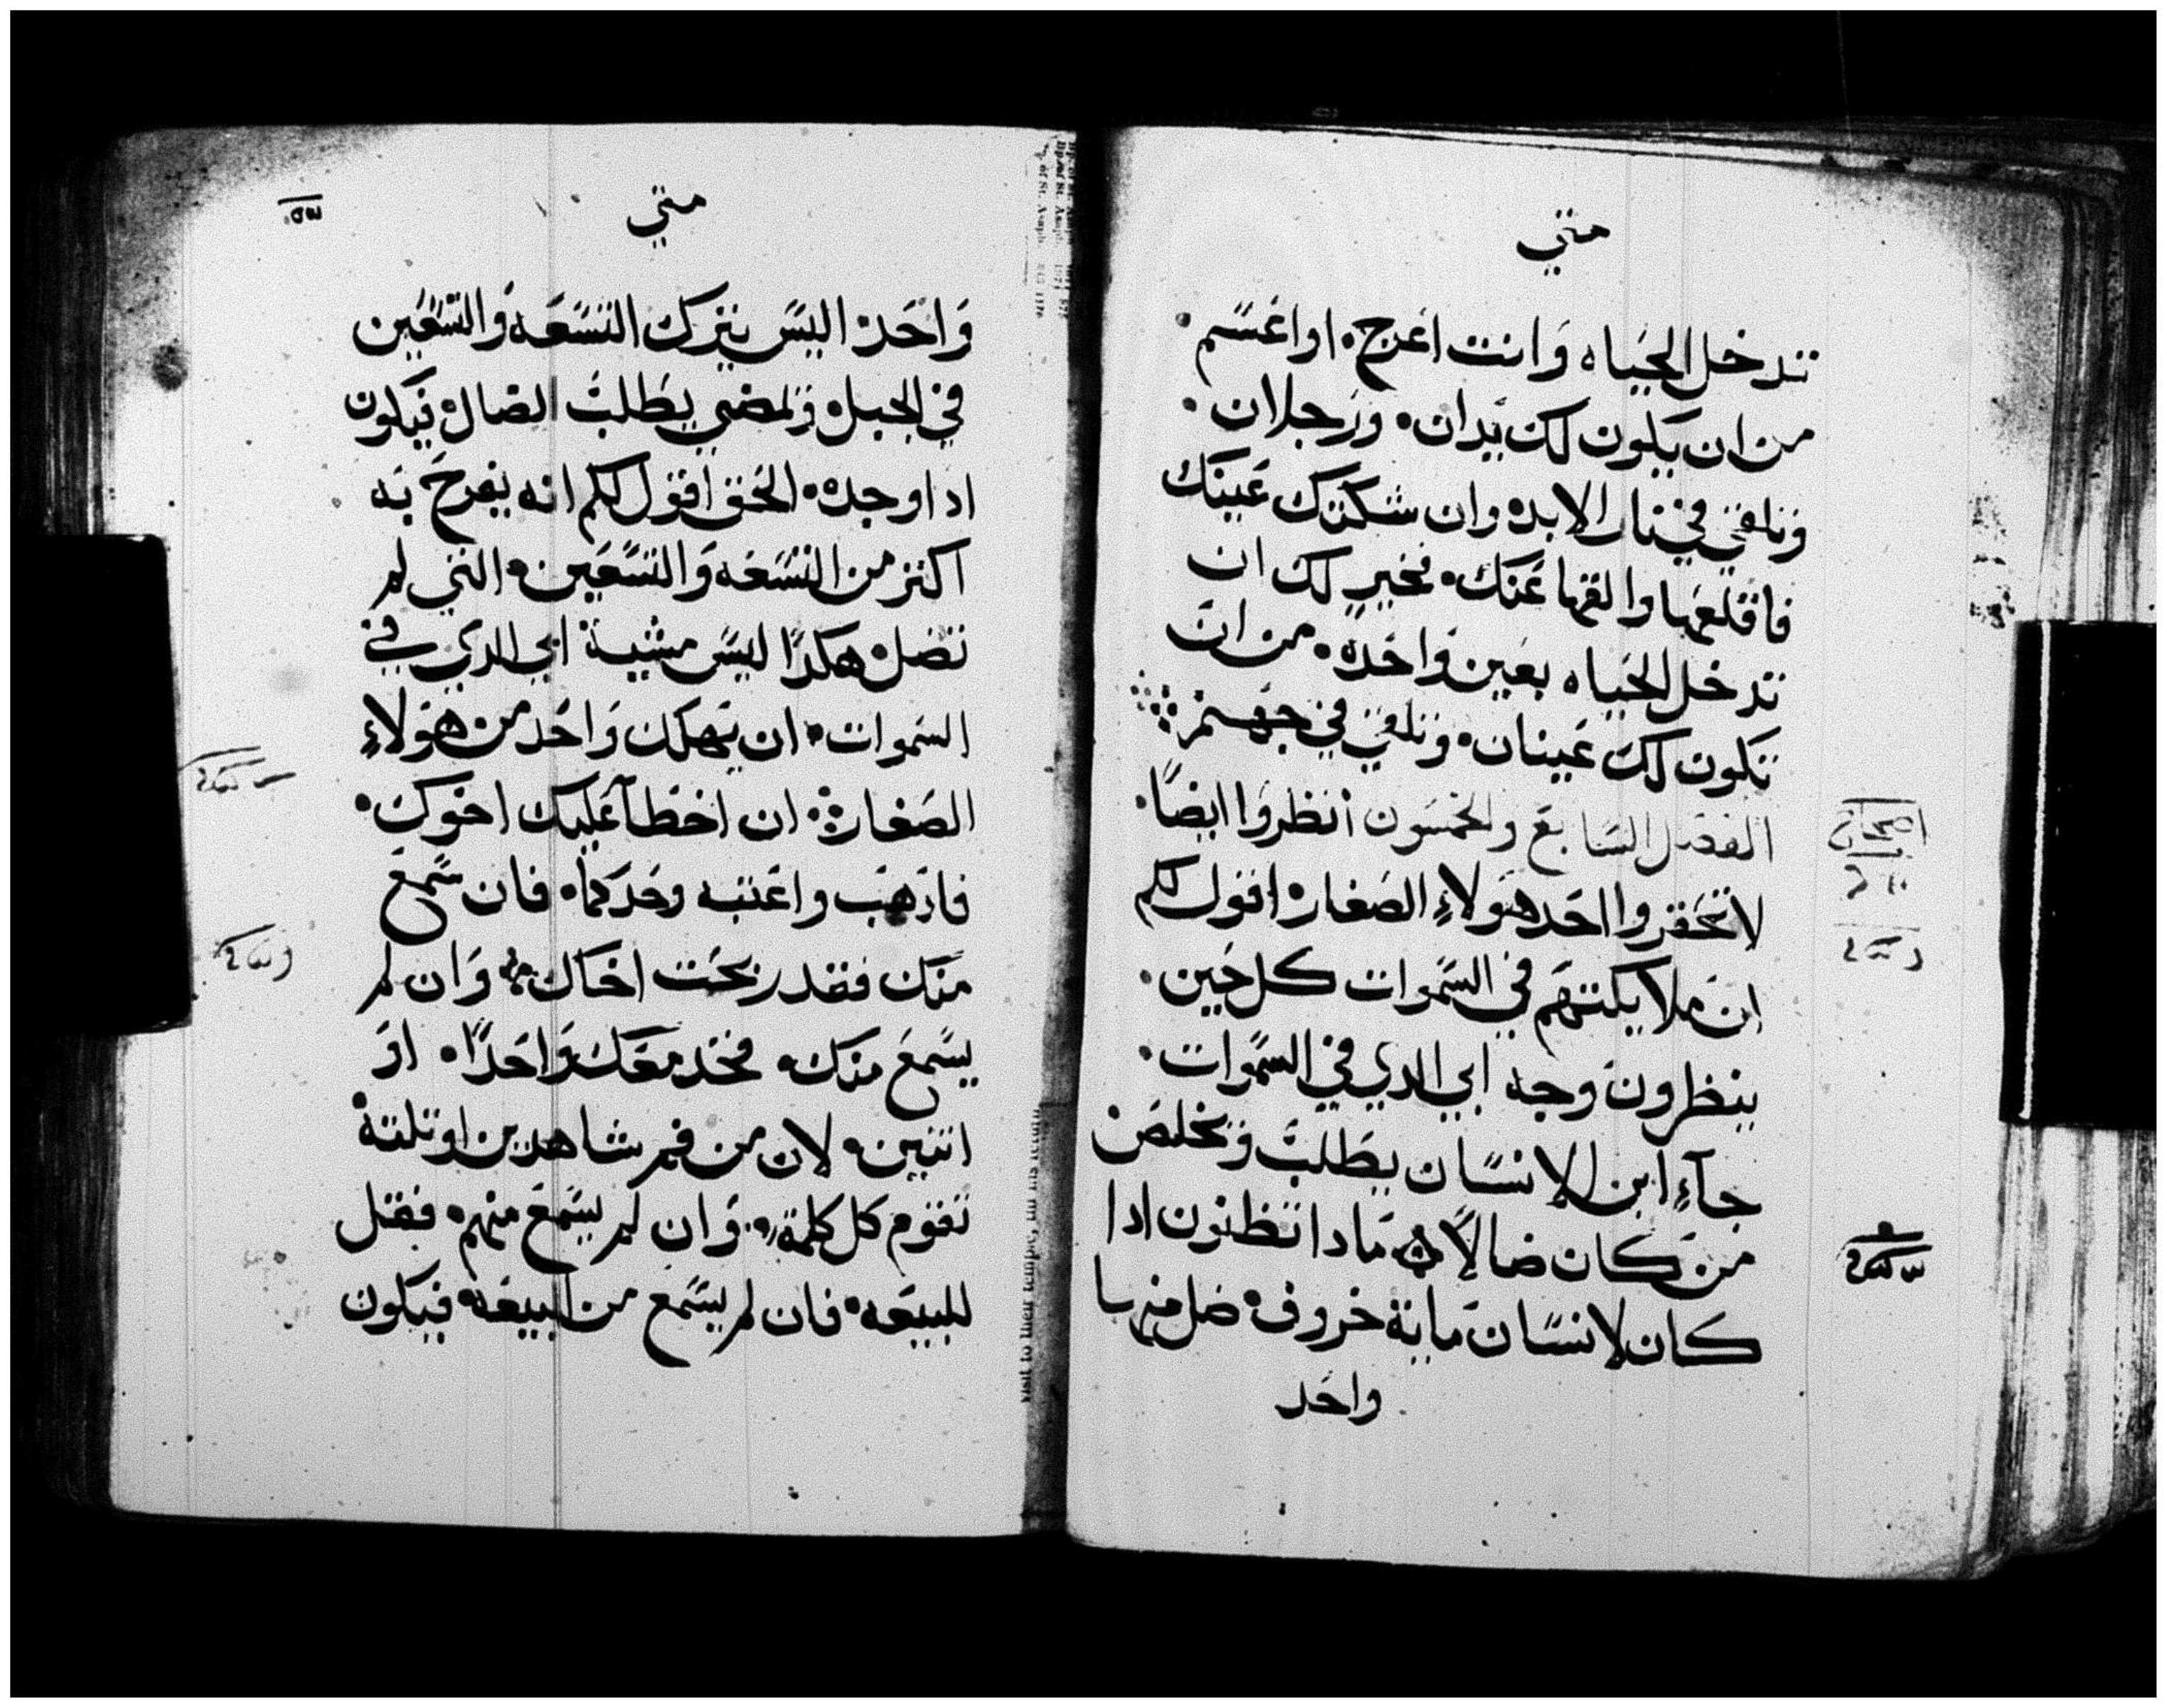 متي
تدخل الحياه وانت اعرج. او اعسم.
من ان يكون لك يدان. ورجلان.
وتلقي في نار الابده وان شككتك عينك
فاقلعها والقها عنك. فخير لك ان
تدخل الحياه بعين واحده. من ان
تكون لك عينان. وتلقي في جهنم
الفصل السابع والخمسون انظروا ايضًا.
لا تحقروا احد هولاءِ الصغاره اقول لكم
ان ملايكتهم في السموات كل حين.
ينظرون وجه ابي الدي في السموات.
جآءِ ابن الانسان يطلب ويخلص
من كان ضالاً. مادا تظنون ادا
كان لانسان ماية خروف. ضل منها
واحد
متي
واحد. اليس يترك التسعه والتسعين
في الجبل. ويمضي يطلب الضال. فيكون
ادا وجده. الحق اقول لكم انه يفرح به
اكتر من التسعه والتسعين. التي لم
تضل. هكدا ليس مشية ابي الدي في
السموات. ان يهلك واحد من هولاءِ
الصغار. ان اخطآ عليك اخوك.
فادهب واعتبه وحدكما. فان سمع
منك فقد ربحت اخاك. وان لم
يسمع منك. فخد معك واحدًا. او
اتنين. لان من فم شاهدين او تلتة
تقوم كل كلمة. وان لم يسمع منهم. فقل
للبيعه. فان لم يسمع من البيعه. فيكون